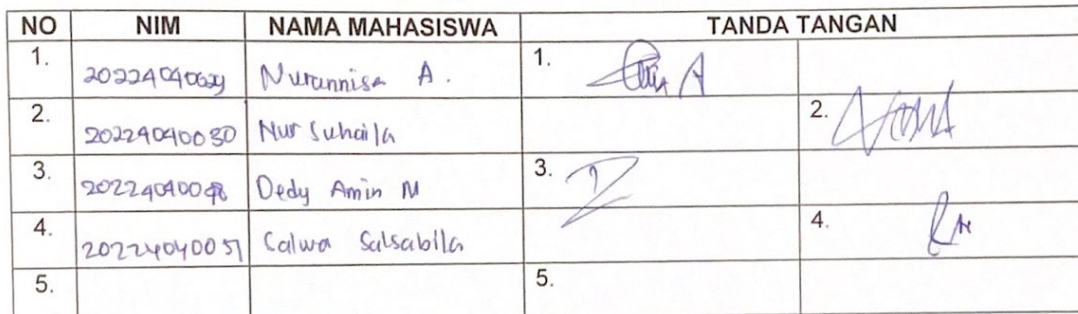 NO NIM NAMA MAHASISWA TANDA TANGAN
1. Nurannisa A. 1.
2. 20224040030 Nur Suhaila 2.
3. Dedy Amin M 3.
4. 20224040051 Salwa Salsabila 4.
5. 5.